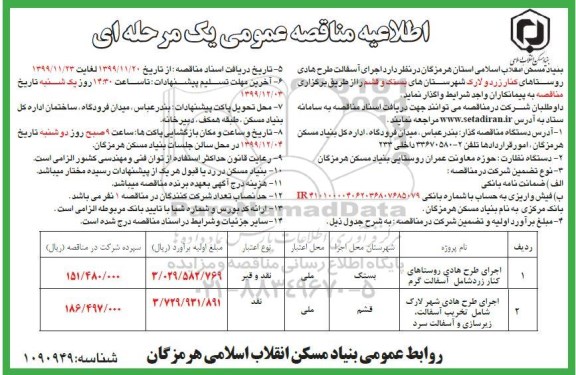 اطلاعیه مناقصه عمومی یک مرحله ای
بنیاد مسکن انقلاب اسلامی استان هرمزگان در نظر دارد اجرای آسفالت طرح هادی
روستاهای کنار زرد و لارک شهرستان های بستک و قشم را از طریق برگزاری
مناقصه به پیمانکاران واجد شرایط واگذار نماید.
داوطلبان شرکت در مناقصه می توانند جهت دریافت اسناد مناقصه به سامانه
ستاد به آدرس www.setadiran.ir مراجعه نمایند.
۱- آدرس دستگاه مناقصه گذار: بندرعباس، میدان فرودگاه، اداره کل بنیاد مسکن
هرمزگان، امور قراردادها تلفن ۲-۳۳۶۷۰۵۸۰ داخلی ۲۳۳
۲- دستگاه نظارت: حوزه معاونت عمران روستایی بنیاد مسکن هرمزگان
۳- نوع تضمین شرکت در مناقصه:
الف) ضمانت نامه بانکی
ب) فیش واریزی به حساب با شماره بانکی IR ۴۱۰۱۰۰۰۰۴۰۶۲۰۳۶۸۰۷۶۸۵۰۷۹
بانک مرکزی به نام بنیاد مسکن هرمزگان.
۴- مبلغ برآورد اولیه و تضمین شرکت در مناقصه: به شرح جدول ذیل.
۵- تاریخ دریافت اسناد مناقصه: از تاریخ ۱۳۹۹/۱۱/۲۰ لغایت ۱۳۹۹/۱۱/۲۳
۶- آخرین مهلت تسلیم پیشنهادات: تا ساعت ۱۴:۳۰ روز یک شنبه تاریخ
۱۳۹۹/۱۲/۰۳
۷- محل تحویل پاکت پیشنهادات: بندرعباس، میدان فرودگاه، ساختمان اداره کل
بنیاد مسکن، طبقه همکف، دبیرخانه.
۸- تاریخ و ساعت و مکان بازگشایی پاکت ها: ساعت ۹ صبح روز دوشنبه تاریخ
۱۳۹۹/۱۲/۰۴ در محل سالن جلسات بنیاد مسکن هرمزگان.
۹- رعایت قانون حداکثر استفاده از توان فنی و مهندسی کشور الزامی است.
۱۰- بنیاد مسکن در رد یا قبول هر یک از پیشنهادات رسیده مختار میباشد.
۱۱- هزینه درج آگهی بعهده برنده مناقصه میباشد.
۱۲- حد نصاب تعداد شرکت کنندگان در مناقصه ۱ نفر می باشد.
۱۳- ارائه کد بورس و شماره شبا با تایید بانک مربوطه الزامی است.
۱۴- سایر جزئیات و شرایط در اسناد مناقصه درج شده است.
ردیف نام پروژه شهرستان محل اجرا محل اعتبار نوع اعتبار مبلغ اولیه برآورد (ریال) سپرده شرکت در مناقصه (ریال)
۱ اجرای طرح هادی روستاهای کنار زرد شامل آسفالت گرم بستک ملی نقد و قیر ۳/۰۲۹/۵۸۲/۷۶۹ ۱۵۱/۴۸۰/۰۰۰
۲ اجرای طرح هادی شهر لارک شامل تخریب آسفالت، زیرسازی و آسفالت سرد قشم ملی نقد ۳/۷۲۹/۹۳۱/۸۹۱ ۱۸۶/۴۹۷/۰۰۰
روابط عمومی بنیاد مسکن انقلاب اسلامی هرمزگان
شناسه: ۱۰۹۰۹۴۹